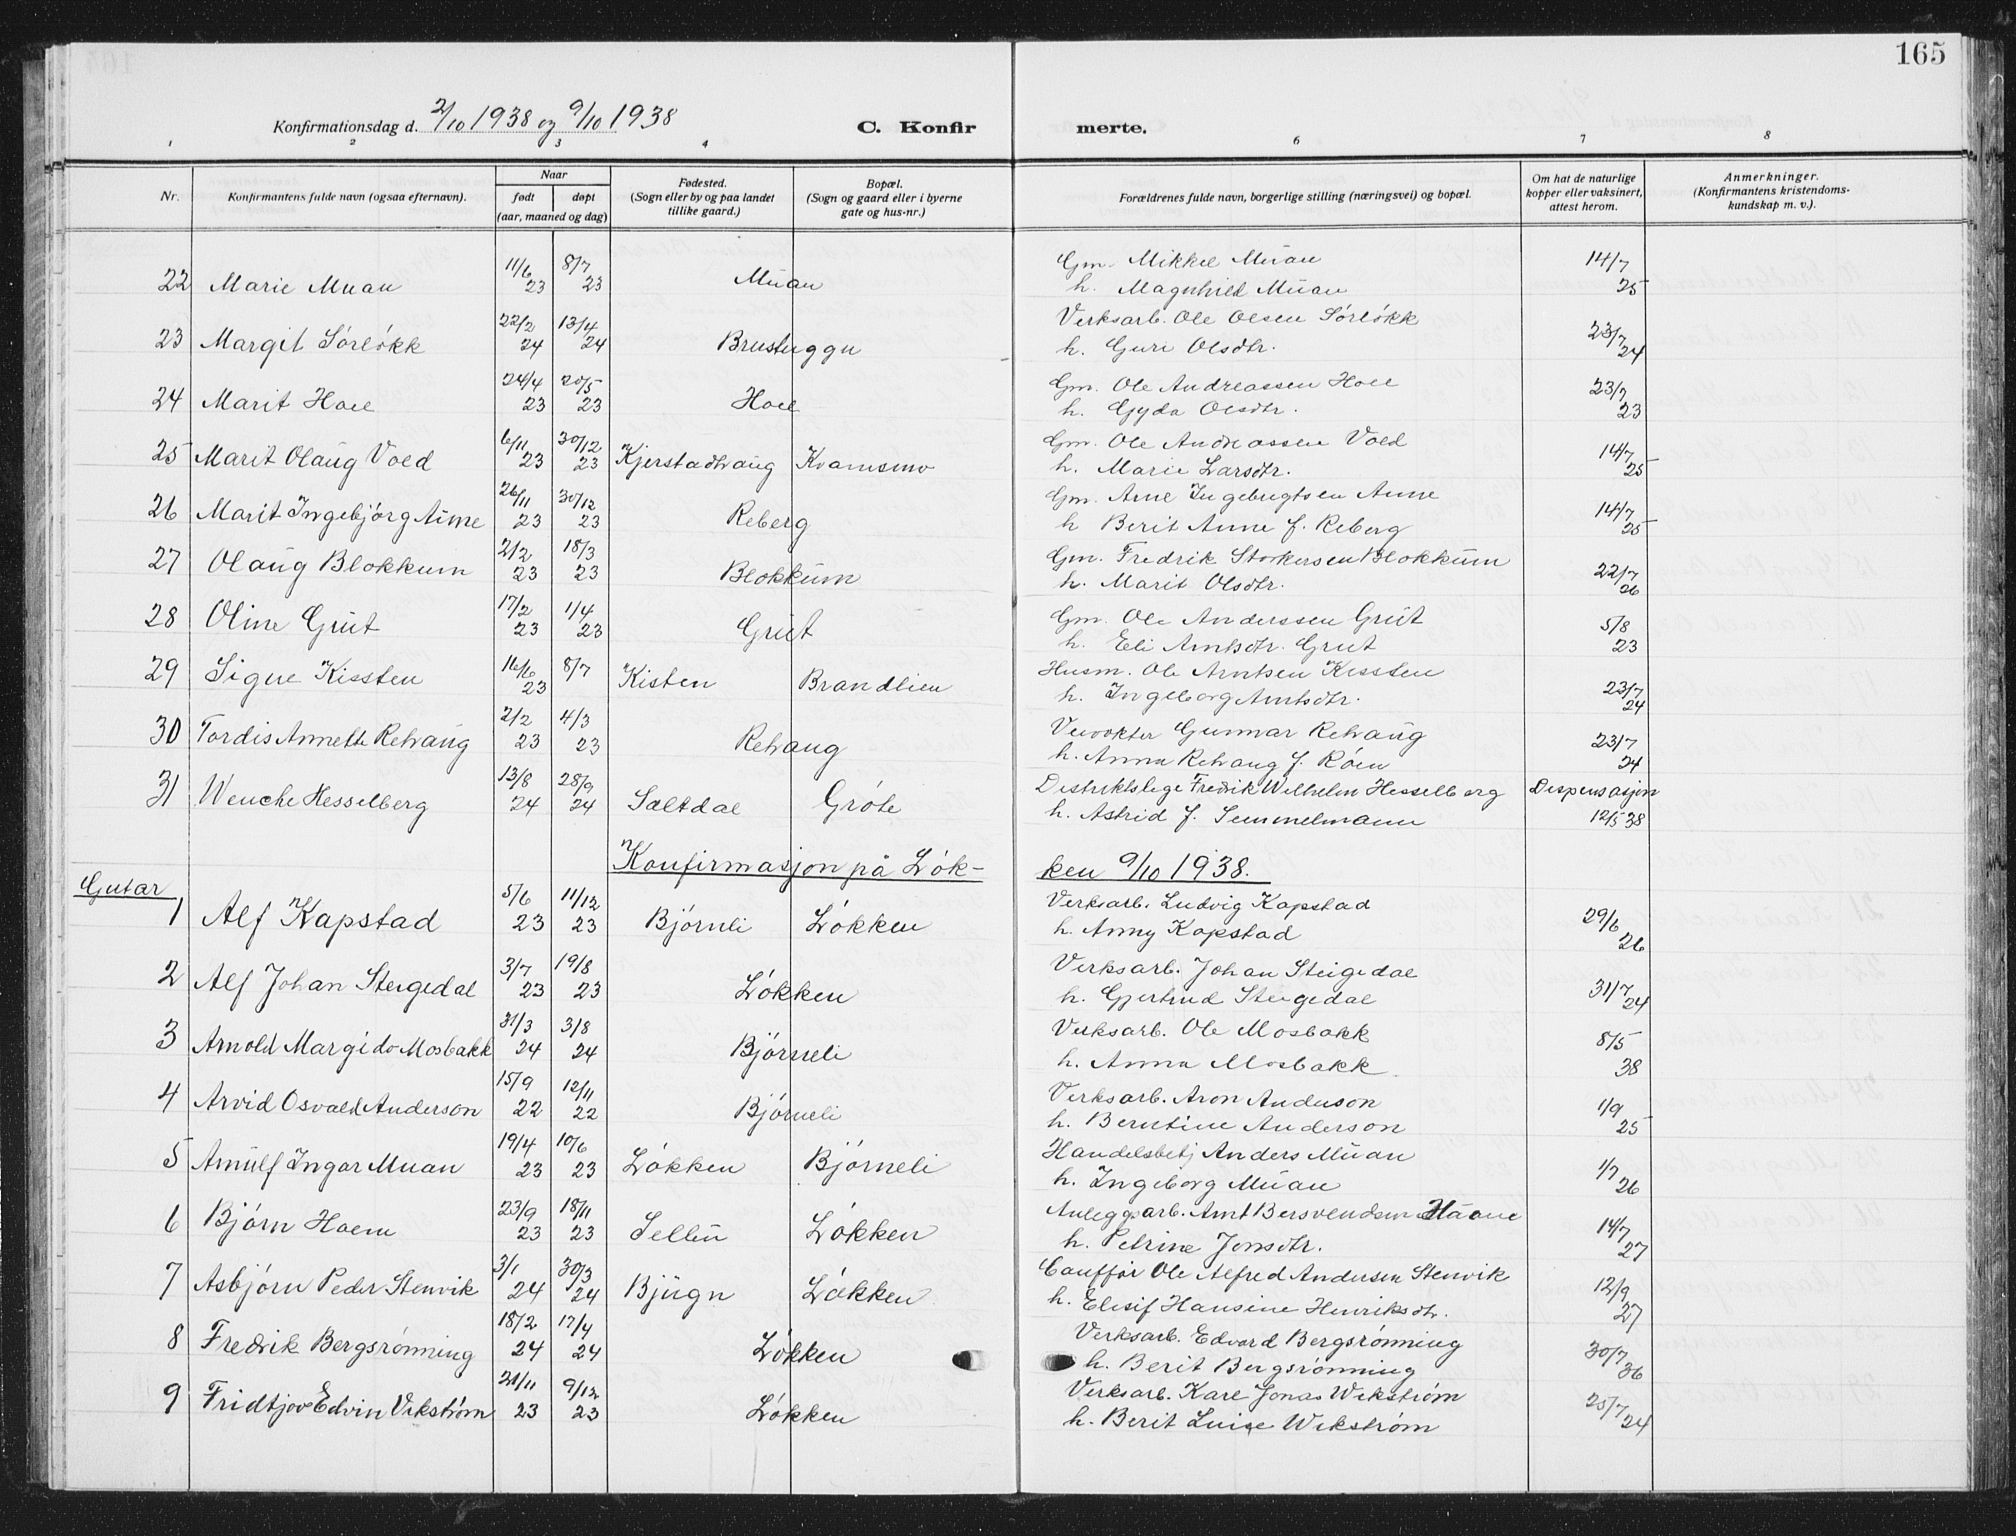 165
Konfirmationsdag d. 2/10 1938 og 9/10 1938 C. Konfirmerte.
1 2 3 4 6 7 8
Nr. Konfirmantens fulde navn (ogsaa efternavn). Naar født døpt (aar, maaned og dag) Fødested. (Sogn eller by og paa landet tillike gaard.) Bopæl. (Sogn og gaard eller i byerne gate og hus-nr.) Forældrenes fulde navn, borgerlige stilling (næringsvei) og bopæl. Om hat de naturlige kopper eller vaksinert, attest herom. Anmerkninger. (Konfirmantens kristendoms-kundskap m. v.).
22 Marie Muan 11/6 23 8/7 23 Muan Gm. Mikkel Muan 14/7 25
h. Magnhild Muan
23 Margit Sørløkk 22/2 24 13/4 24 Brustuggu Verksarb. Ole Olsen Sørløkk 23/7 24
h. Guri Olsdtr.
24 Marit Hoel 24/4 23 20/5 23 Hoel Gm. Ole Andreassen Hoel 23/7 23
h. Gyda Olsdtr.
25 Marit Olaug Vold 6/11 23 30/12 23 Kjerstadhaug Kvamsmo Gm. Ole Andreassen Vold 14/7 25
h. Marie Larsdtr.
26 Marit Ingebjørg Aune 26/11 23 30/12 23 Reberg Gm. Arne Ingebrigtsen Aune 14/7 25
h Berit Aune f. Reberg
27 Olaug Blokkum 2/2 23 18/3 23 Blokkum Gm. Fredrik Storkersen Blokkum 22/7 26
h. Marit Olsdtr.
28 Oline Grut 17/2 23 1/4 23 Grut Gm. Ole Anderssen Grut 5/8 23
h. Eli Arntsdtr. Grut
29 Signe Kissten 16/6 23 8/7 Kisten Brandlien Husm. Ole Arntsen Kissten 23/7 24
h. Ingeborg Arntsdtr.
30 Tordis Annette Rehaug 2/2 23 4/3 23 Rehaug Gunnar Rehaug 23/7 24
h. Anna Rehaug f. Røen
31 Wenche Hesselberg 13/8 24 28/9 24 Saltdal Grøte Distriktslege Fredrik Wilhelm Hesselberg Dispensasjon 12/5 38
h. Astrid f. Semmelmann
Konfirmasjon på Løkken 9/10 1938.
Gutar
1 Alf Kapstad 5/6 23 11/12 23 Bjørnli Løkken Verksarb. Ludvig Kapstad 29/6 26
h. Anny Kapstad
2 Alf Johan Steigedal 3/7 23 19/8 23 Løkken Verksarb. Johan Steigedal 31/7 24
h. Gjertrud Steigedal
3 Arnold Margido Mosbakk 31/3 24 3/8 24 Bjørneli Verksarb. Ole Mosbakk 8/5 38
h. Anna Mosbakk.
4 Arvid Osvald Anderson 15/9 22 12/11 22 Bjørneli Verksarb. Aron Anderson 1/9 25
h. Berntine Anderson
5 Arnulf Ingar Muan 19/4 23 10/6 23 Løkken Bjørneli Handelsbetj Anders Muan 1/7 26
h. Ingeborg Muan
6 Bjørn Hoem 23/9 23 18/11 23 Løkken Anleggsarb. Arnt Bersvendsen 14/7 27
h. Petrine Jonsdtr.
7 Asbjørn Peder Stenvik 3/1 24 30/3 24 Bjugn Løkken Cauffør Ole Alfred Andersen Stenvik 12/9 27
h. Elisif Hansine Henriksdtr.
8 Fredrik Bergsrønning 18/2 24 17/4 24 Løkken Verksarb. Edvard Bergsrønning 30/7 36
h. Berit Bergsrønning
9 Fridtjov Edvin Vikstrøm 21/11 23 9/12 23 Løkken Verksarb. Karl Jonas Wikstrøm 25/7 24
h. Berit Luise Wikstrøm